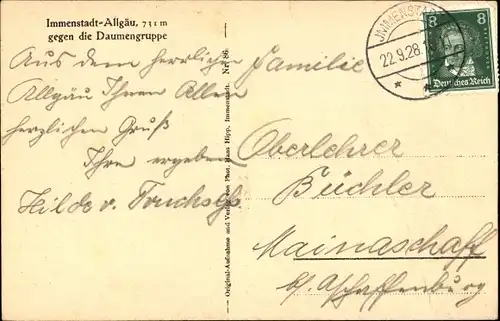 Immenstadt-Allgäu, 731 m
gegen die Daumengruppe
Aus dem herrlichen
Allgäu Ihnen Allen
herzlichen Gruß
Ihre ergeben
Hilde v.
Original-Aufnahme und Verlag von Phot. Hans Hipp, Immenstadt. Nr. 86
IMMENSTADT
22.9.28.
8 8
Deutsches Reich
Familie
Oberlehrer
Büchler
Mainaschaff
b/ Aschaffenburg